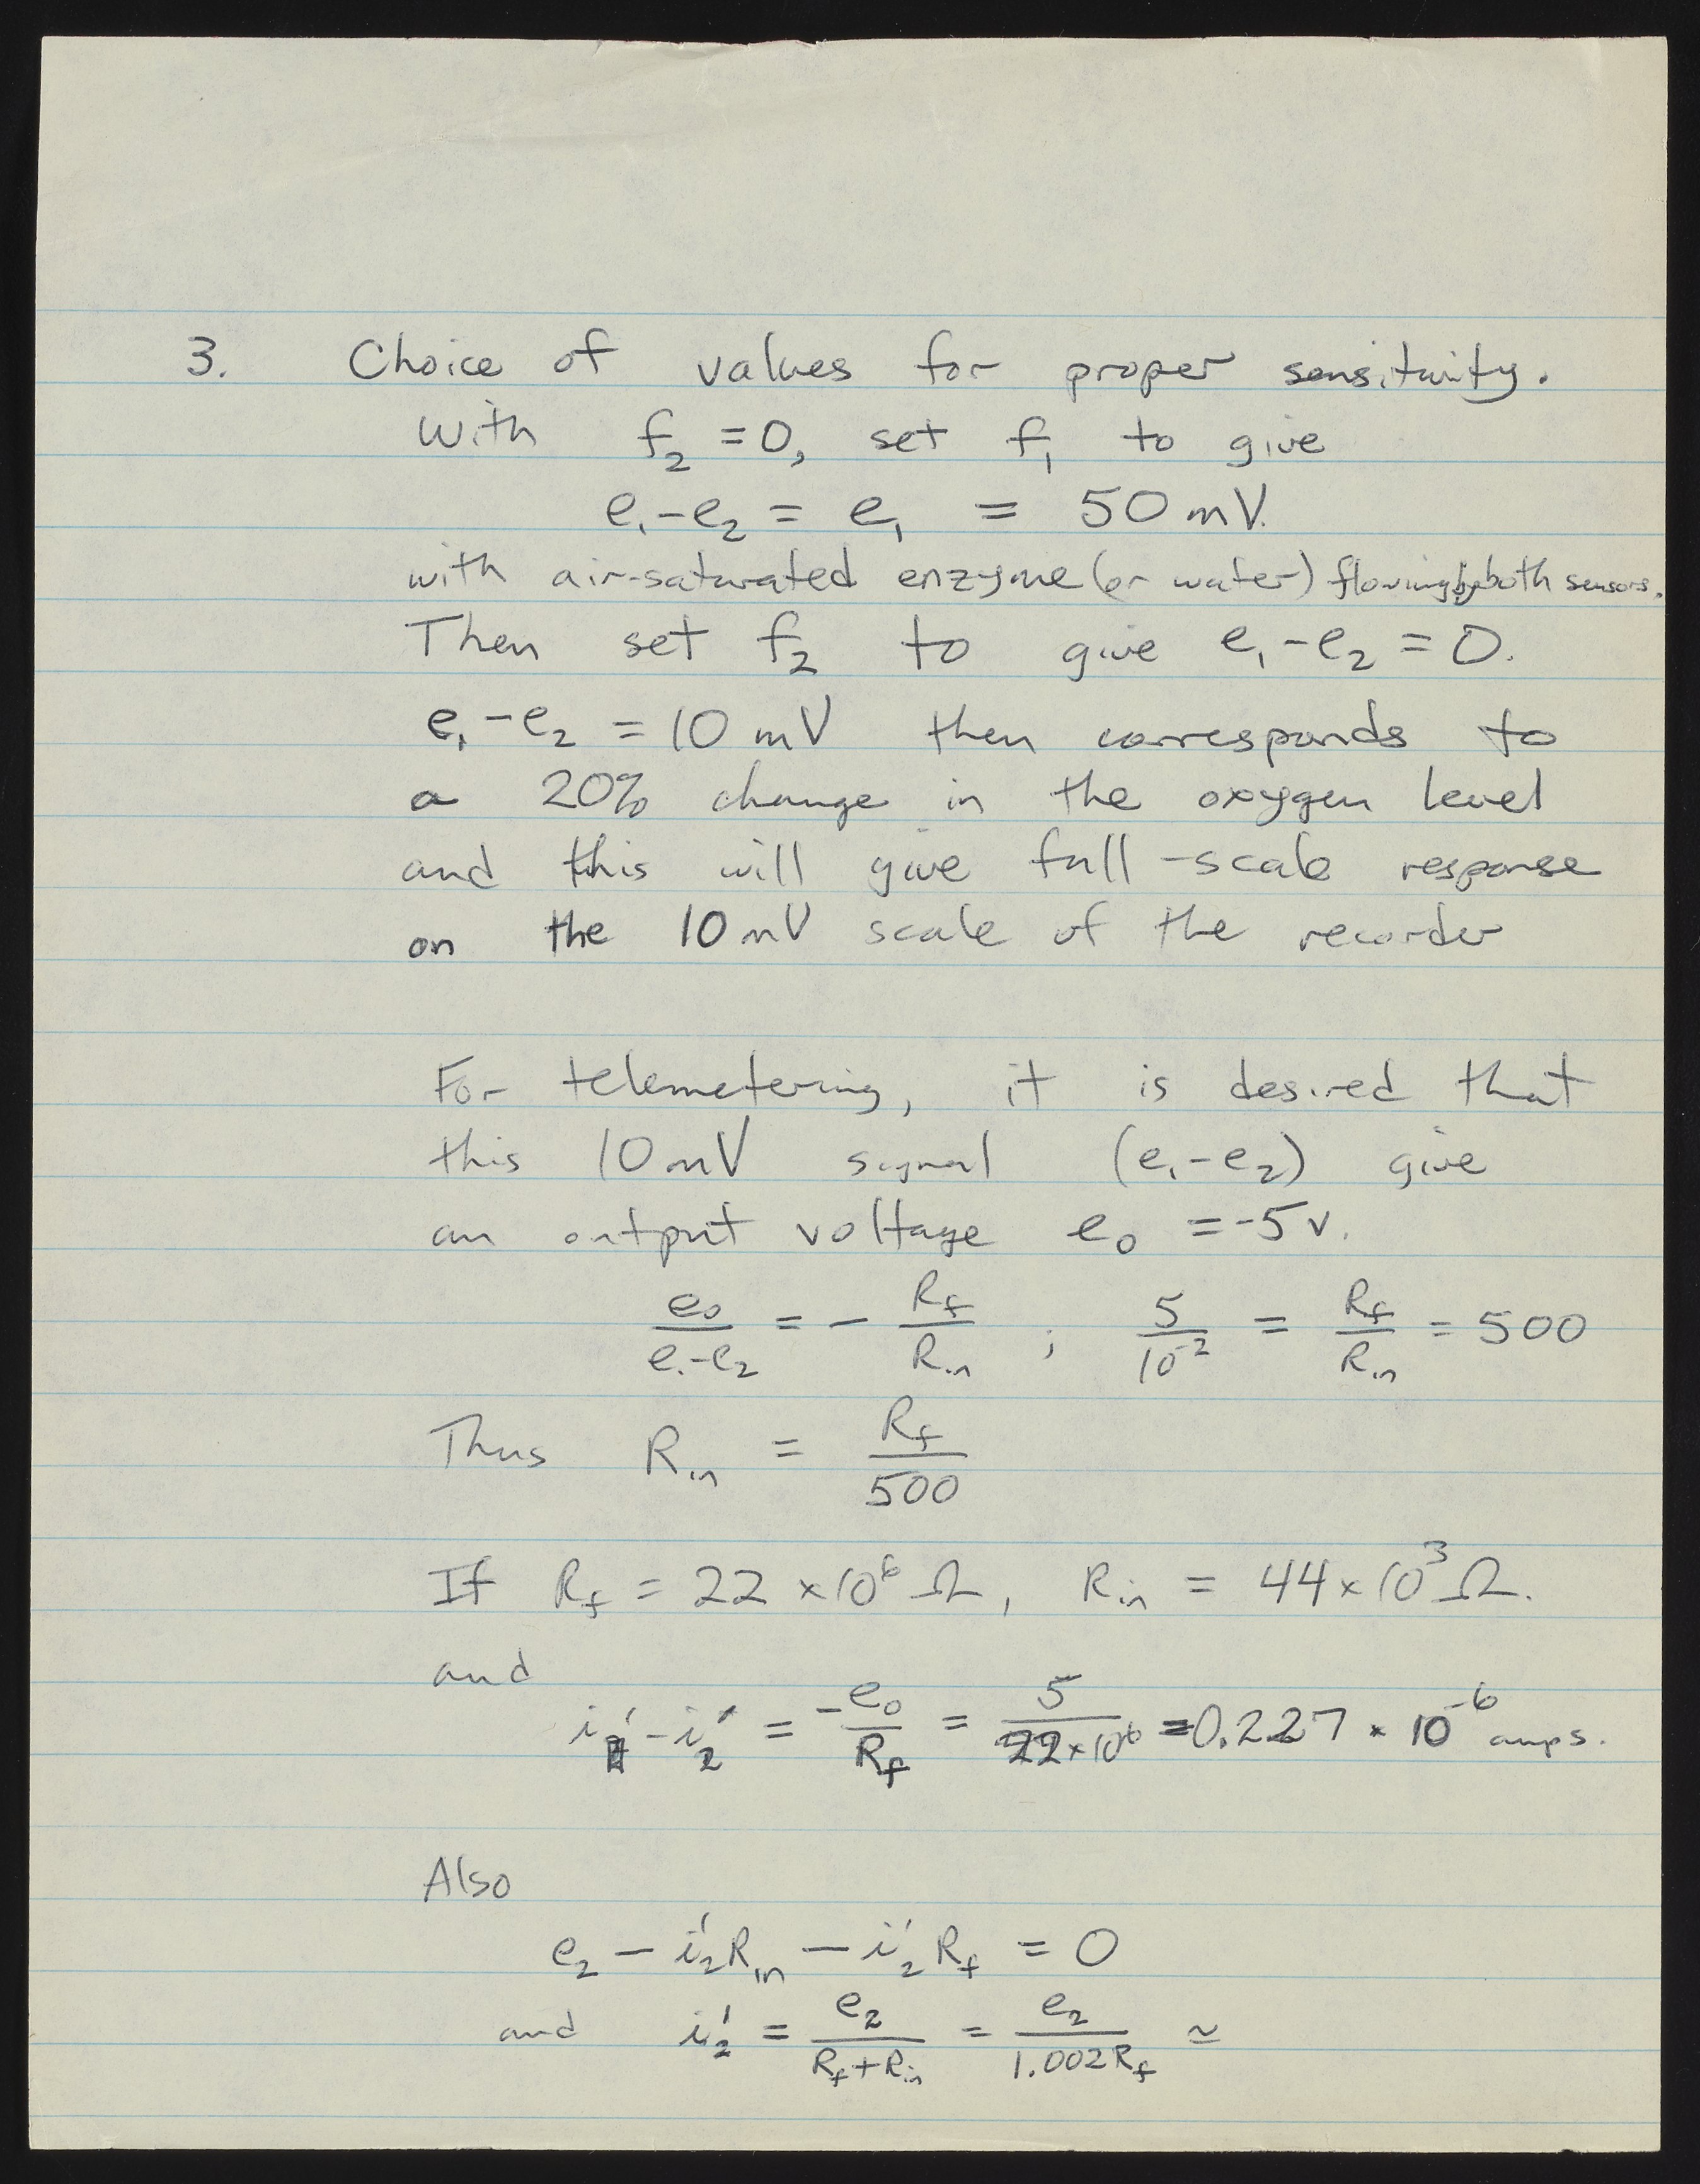 3. Choice of values for proper sensitivity.
With f₂ = 0, set f₁ to give
e₁-e₂ = e₁ = 50 mV.
with air-saturated enzyme (or water) flowing by both sensors.
Then set f₂ to give e₁-e₂ = 0.
e₁-e₂ = 10 mV then corresponds to
a 20% change in the oxygen level
and this will give full-scale response
on the 10 mV scale of the recorder
For telemetering, it is desired that
this 10 mV signal (e₁-e₂) give
an output voltage e₀ = -5 v.
e₀/(e₁-e₂) = - R_f/R_in ; 5/10⁻² = R_f/R_in = 500
Thus R_in = R_f/500
If R_f = 22 × 10⁶ Ω, R_in = 44 × 10³ Ω.
and
i₁′ - i₂′ = -e₀/R_f = 5/(22 × 10⁶) = 0.227 × 10⁻⁶ amps.
Also
e₂ - i₂′R_in - i₂′R_f = 0
and i₂′ = e₂/(R_f + R_in) = e₂/(1.002 R_f) ≃